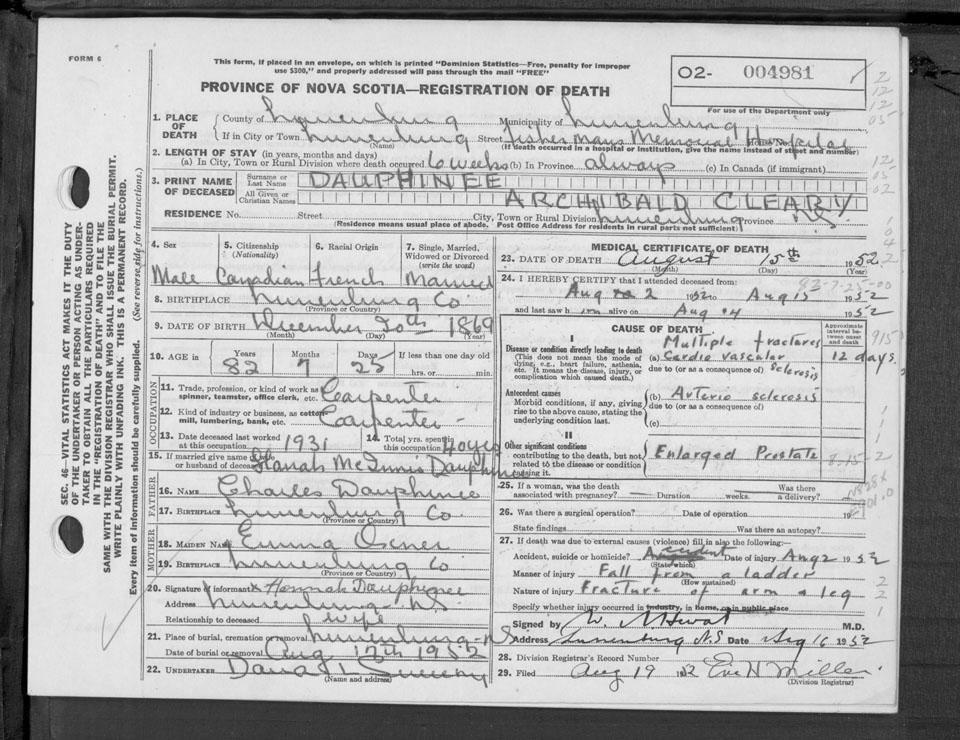 FORM 6
This form, if placed in an envelope, on which is printed "Dominion Statistics—Free, penalty for improper
use $300," and properly addressed will pass through the mail "FREE"
02- 004981
PROVINCE OF NOVA SCOTIA—REGISTRATION OF DEATH
For use of the Department only
1. PLACE OF DEATH
County of Lunenburg Municipality of Lunenburg
If in City or Town Lunenburg Street Fishermans Memorial Hospital
(Name) (If death occurred in a hospital or institution, give the name instead of street and number)
2. LENGTH OF STAY (in years, months and days)
(a) In City, Town or Rural Division where death occurred 6 weeks (b) In Province always (c) In Canada (if immigrant)
3. PRINT NAME OF DECEASED
Surname or Last Name DAUPHINEE
All Given or Christian Names ARCHIBALD CLEARY
RESIDENCE No. Street City, Town or Rural Division Lunenburg Province N.S.
(Residence means usual place of abode. Post Office Address for residents in rural parts not sufficient)
4. Sex Male
5. Citizenship (Nationality) Canadian
6. Racial Origin French
7. Single, Married, Widowed or Divorced (write the word) Married
8. BIRTHPLACE Lunenburg Co
(Province or Country)
9. DATE OF BIRTH December 20th 1869
(Month) (Day) (Year)
10. AGE in Years 82 Months 7 Days 25 If less than one day old
hrs. or min.
OCCUPATION
11. Trade, profession, or kind of work as spinner, teamster, office clerk, etc. Carpenter
12. Kind of industry or business, as cotton mill, lumbering, bank, etc. Carpenter
13. Date deceased last worked at this occupation 1931
14. Total yrs. spent in this occupation 40 yrs
15. If married give name of wife or husband of deceased Hanah McInnis Dauphinee
FATHER
16. NAME Charles Dauphinee
17. BIRTHPLACE Lunenburg Co
(Province or Country)
MOTHER
18. MAIDEN NAME Emma
19. BIRTHPLACE Lunenburg Co
(Province or Country)
20. Signature of informant x Hannah Dauphinee
Address Lunenburg N.S
Relationship to deceased wife
21. Place of burial, cremation or removal Lunenburg - N.S
Date of burial or removal Aug 17th 1952
22. UNDERTAKER Sweeny
(Name and address)
MEDICAL CERTIFICATE OF DEATH
23. DATE OF DEATH August 15th 1952
(Month) (Day) (Year)
24. I HEREBY CERTIFY that I attended deceased from:
Aug 2 1952 to Aug 15 1952
and last saw him alive on Aug 14 1952
CAUSE OF DEATH
Approximate interval between onset and death
I
Disease or condition directly leading to death
(This does not mean the mode of dying, e.g., heart failure, asthenia, etc. It means the disease, injury, or complication which caused death.)
Multiple fractures
(a) Cardio vascular sclerosis 12 days
due to (or as a consequence of)
Antecedent causes
Morbid conditions, if any, giving rise to the above cause, stating the underlying condition last.
(b) Arterio sclerosis
due to (or as a consequence of)
(c)
II
Other significant conditions contributing to the death, but not related to the disease or condition causing it.
Enlarged Prostate
25. If a woman, was the death associated with pregnancy? Duration weeks. Was there a delivery?
26. Was there a surgical operation? Date of operation 19
State findings Was there an autopsy?
27. If death was due to external causes (violence) fill in also the following:—
Accident, suicide or homicide? Accident Date of injury Aug 2 1952
(State which)
Manner of injury Fall from a ladder
(How sustained)
Nature of injury Fracture of arm & leg
Specify whether injury occurred in industry, in home, or in public place
Signed by M.D.
Address Lunenburg N.S Date Aug 16 1952
28. Division Registrar's Record Number
29. Filed Aug 19 1952 Miller
(Division Registrar)
SEC. 46—VITAL STATISTICS ACT MAKES IT THE DUTY
OF THE UNDERTAKER OR PERSON ACTING AS UNDER-
TAKER TO OBTAIN ALL THE PARTICULARS REQUIRED
IN THE "REGISTRATION OF DEATH" AND TO FILE THE
SAME WITH THE DIVISION REGISTRAR WHO SHALL ISSUE THE BURIAL PERMIT.
WRITE PLAINLY WITH UNFADING INK. THIS IS A PERMANENT RECORD.
Every item of information should be carefully supplied. (See reverse side for instructions.)